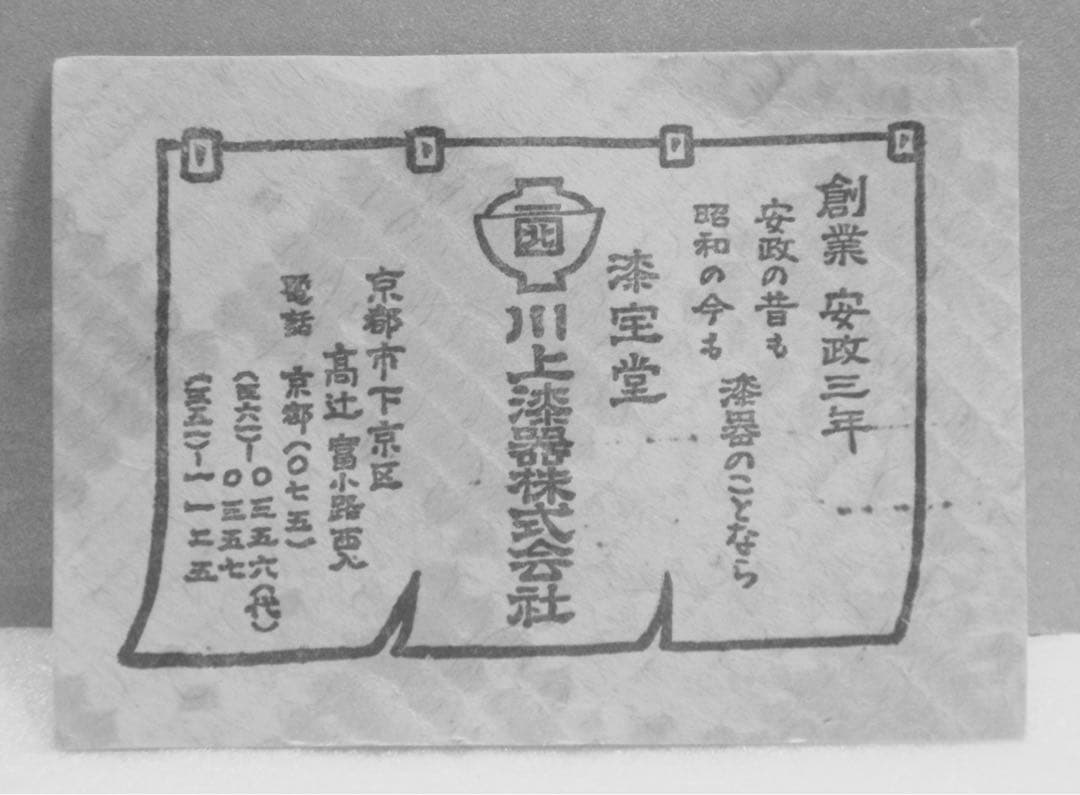 創業 安政三年
安政の昔も
昭和の今も
漆器のことなら
漆宝堂
川上漆器株式会社
京都市下京区
高辻富小路西入
電話 京都(〇七五)
(三六一)-〇三五六(代)
〇三五七
(三五一)-一一二五